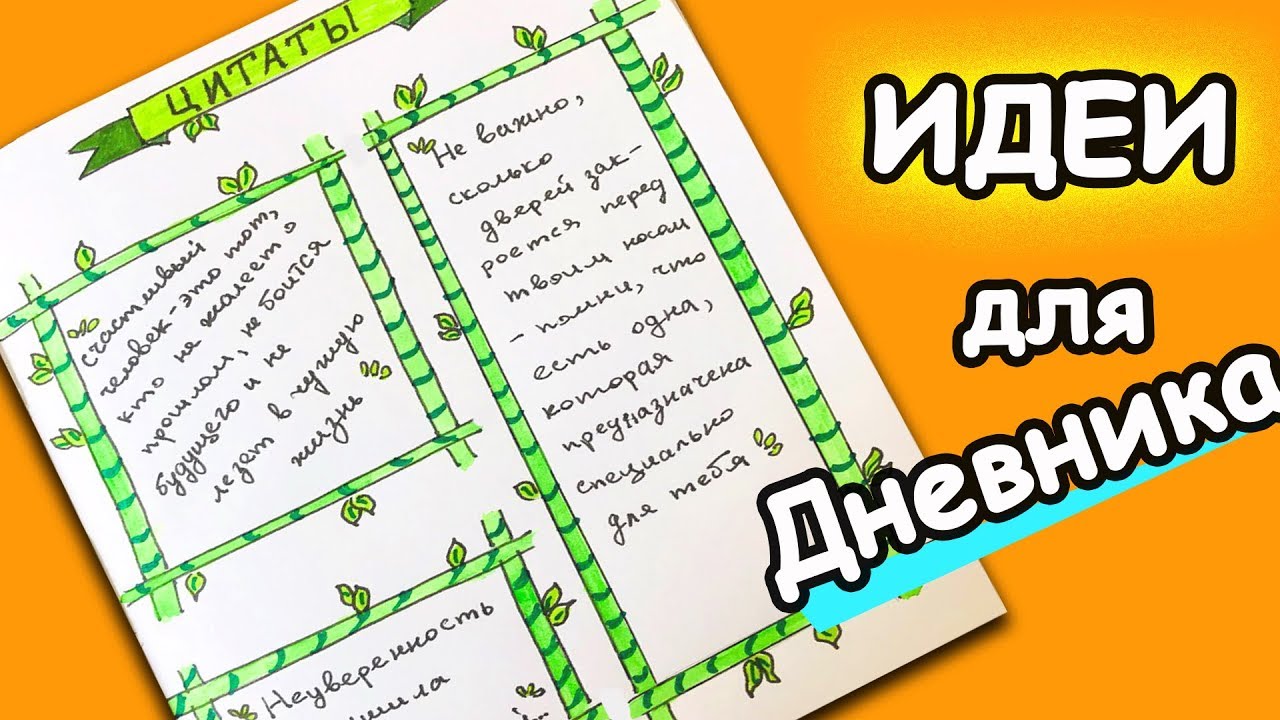 ЦИТАТЫ
Счастливый
человек - это тот,
кто не жалеет о
прошлом, не боится
будущего и не
лезет в чужую
жизнь
Не важно,
сколько
дверей зак-
роется перед
твоим носом
- помни, что
есть одна,
которая
предназначена
специально
для тебя
Неуверенность
ИДЕИ
для
Дневника